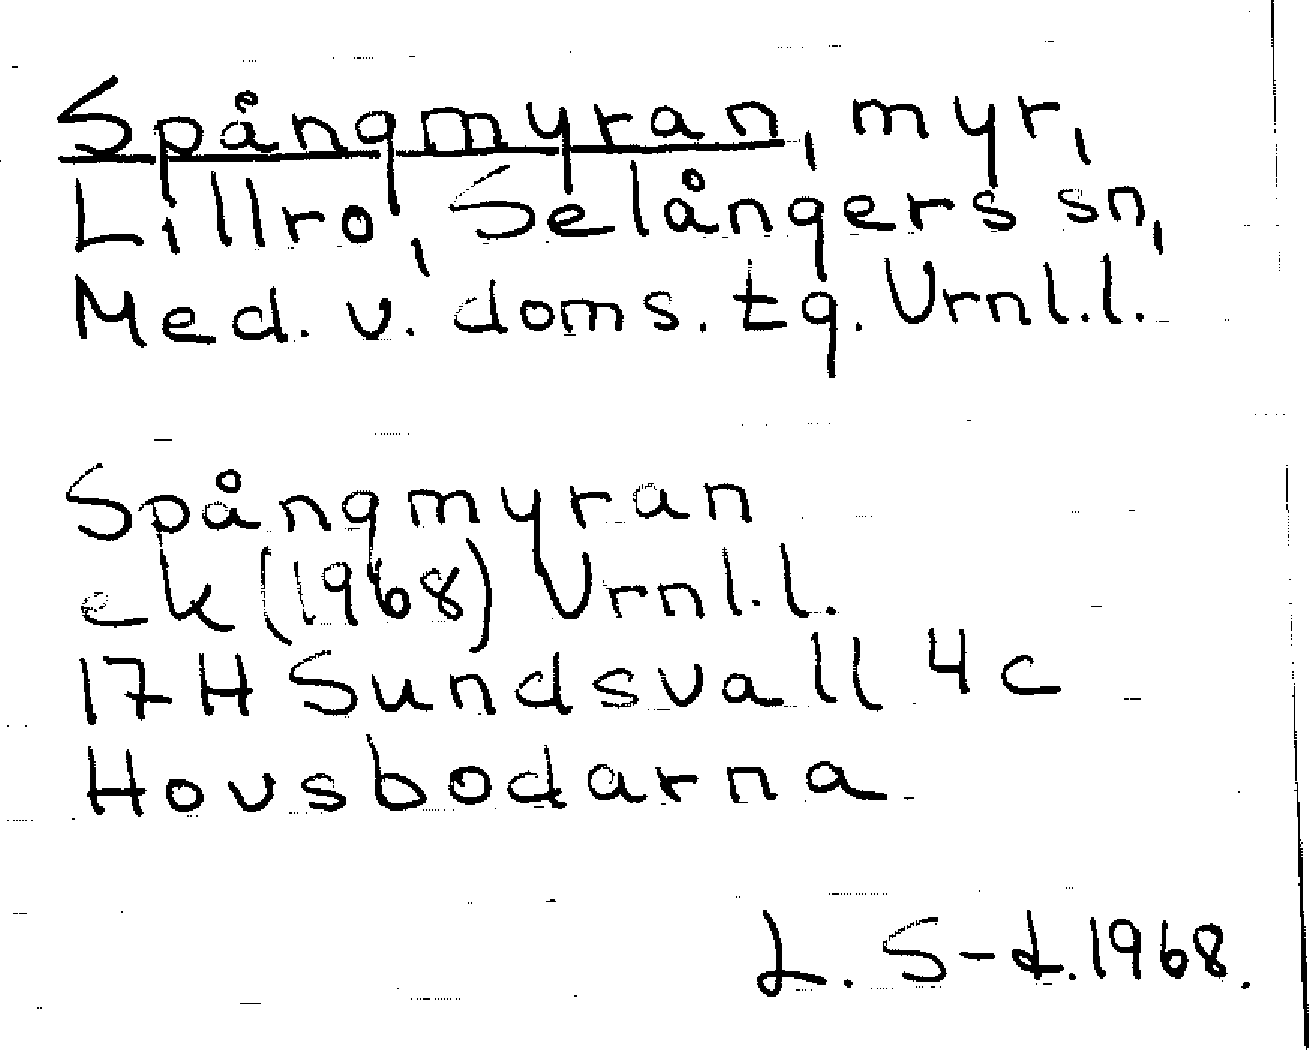 Spångmyran, myr,
Lillro, Selångers sn,
Med. v. doms. tg. Vrnl.l.
Spångmyran
ek (1968) Vrnl.l.
17H Sundsvall 4c
Hovsbodarna
L. S-d. 1968.